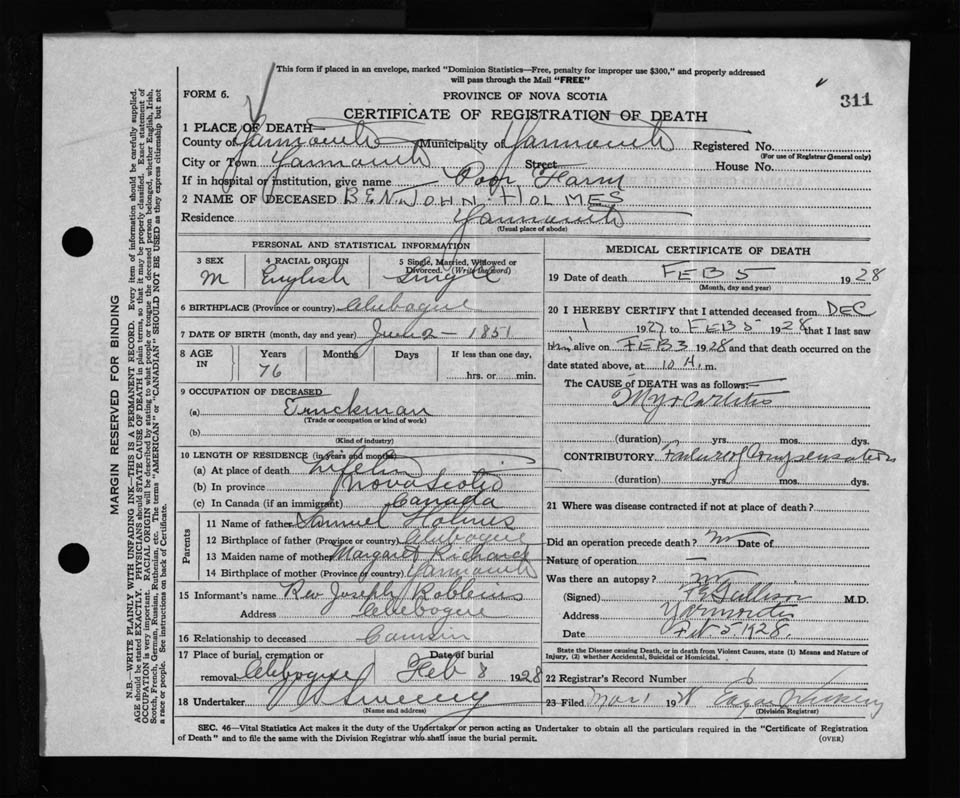 This form if placed in an envelope, marked "Dominion Statistics—Free, penalty for improper use $300," and properly addressed
will pass through the Mail "FREE"
311
FORM 6.
PROVINCE OF NOVA SCOTIA
CERTIFICATE OF REGISTRATION OF DEATH
1 PLACE OF DEATH—
County of Yarmouth Municipality of Yarmouth Registered No.
(For use of Registrar General only)
City or Town Yarmouth Street House No.
If in hospital or institution, give name Poor Farm
2 NAME OF DECEASED BENJ. JOHN HOLMES
Residence Yarmouth
(Usual place of abode)
PERSONAL AND STATISTICAL INFORMATION
3 SEX 4 RACIAL ORIGIN 5 Single, Married, Widowed or Divorced. (Write the word)
M English Single
6 BIRTHPLACE (Province or country) Chebogue
7 DATE OF BIRTH (month, day and year) 1851
8 AGE IN Years Months Days If less than one day,
76 hrs. or min.
9 OCCUPATION OF DECEASED
(a) Truckman
(Trade or occupation or kind of work)
(b)
(Kind of industry)
10 LENGTH OF RESIDENCE (in years and months)
(a) At place of death Lifetime
(b) In province Nova Scotia
(c) In Canada (if an immigrant) Canada
Parents
11 Name of father Samuel Holmes
12 Birthplace of father (Province or country) Chebogue
13 Maiden name of mother Margaret
14 Birthplace of mother (Province of country) Yarmouth
15 Informant's name Rev Joseph Robbins
Address Chebogue
16 Relationship to deceased Cousin
17 Place of burial, cremation or Date of burial
removal Chebogue Feb 8 1928
18 Undertaker Sweeny
(Name and address)
MEDICAL CERTIFICATE OF DEATH
19 Date of death FEB 5 1928
(Month, day and year)
20 I HEREBY CERTIFY that I attended deceased from DEC
1 1927 to FEB 5 1928 that I last saw
him alive on FEB 3 1928 and that death occurred on the
date stated above, at 10 A. m.
The CAUSE of DEATH was as follows:
Myocarditis
(duration) yrs. mos. dys.
CONTRIBUTORY Failure of Compensation
(duration) yrs. mos. dys.
21 Where was disease contracted if not at place of death?
Did an operation precede death? no Date of
Nature of operation —
Was there an autopsy? no
(Signed) M.D.
Address Yarmouth
Date Feb. 5, 1928.
State the Disease causing Death, or in death from Violent Causes, state (1) Means and Nature of
Injury, (2) whether Accidental, Suicidal or Homicidal.
22 Registrar's Record Number 6
23 Filed Mar 1 1928
(Division Registrar)
SEC. 46—Vital Statistics Act makes it the duty of the Undertaker or person acting as Undertaker to obtain all the particulars required in the "Certificate of Registration
of Death" and to file the same with the Division Registrar who shall issue the burial permit.
(OVER)
MARGIN RESERVED FOR BINDING
N.B.—WRITE PLAINLY WITH UNFADING INK—THIS IS A PERMANENT RECORD. Every item of information should be carefully supplied.
AGE should be stated EXACTLY. PHYSICIANS should STATE CAUSE OF DEATH in plain terms, so that it may be properly classified. Exact statement of
OCCUPATION is very important. RACIAL ORIGIN will be described by stating to what people or tongue the deceased person belonged, whether English, Irish,
Scotch, French, German, Russian, Ruthenian, etc. The terms "AMERICAN" or "CANADIAN" SHOULD NOT BE USED as they express citizenship but not
a race or people. See instructions on back of Certificate.